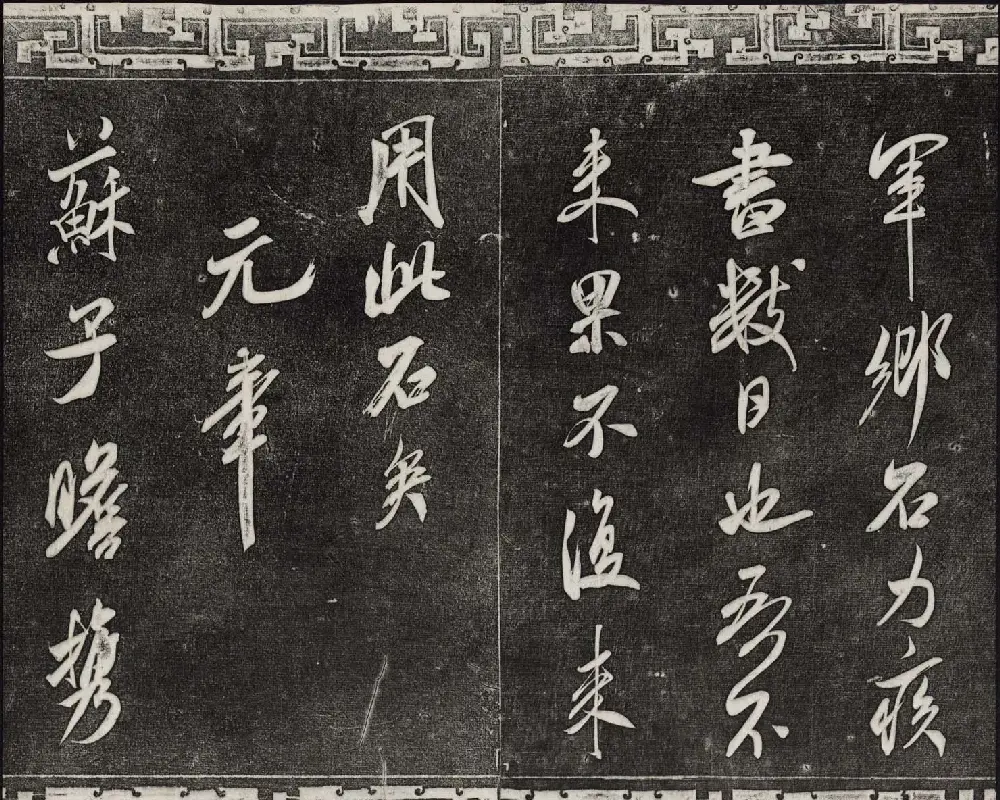 軍鄉石力疾
書數日也吾不
来果不復来
用此石矣
元章
蘇子瞻携